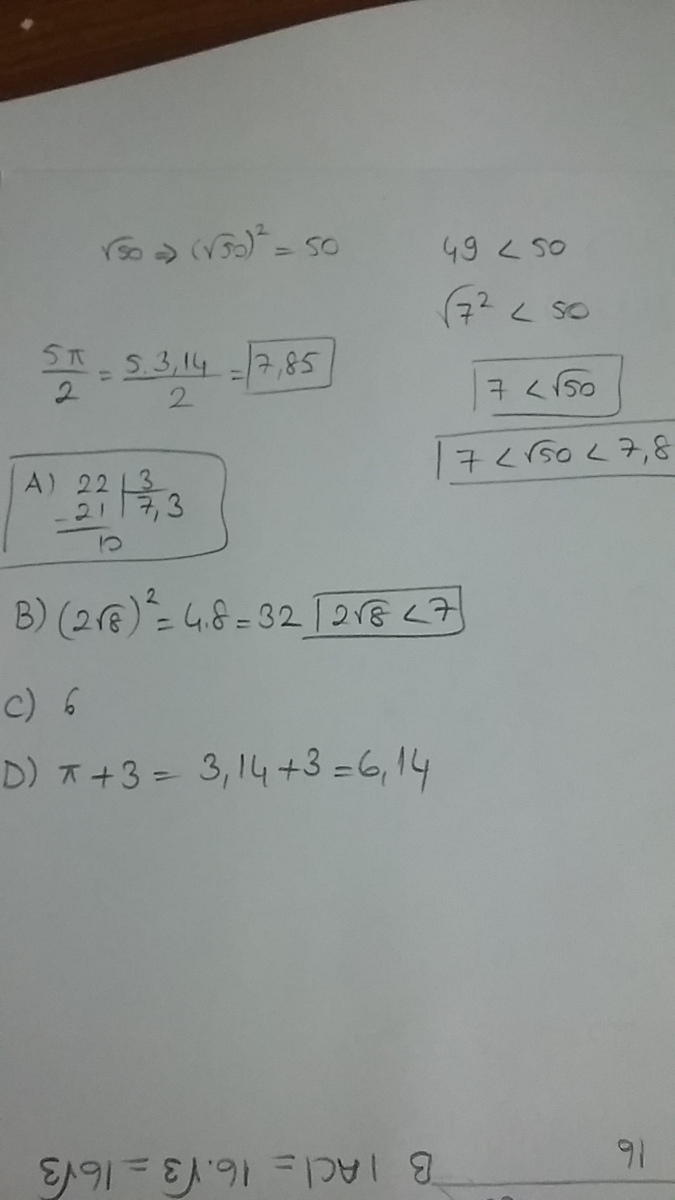 √50 ⇒ (√50)² = 50
49 < 50
√7² < 50
7 < √50
7 < √50 < 7,8
5π/2 = 5.3,14/2 = 7,85
A) 22 | 3
-21 | 7,3
10
B) (2√8)² = 4.8 = 32 2√8 < 7
C) 6
D) π + 3 = 3,14 + 3 = 6,14
16
B |AC| = 16.√3 = 16√3